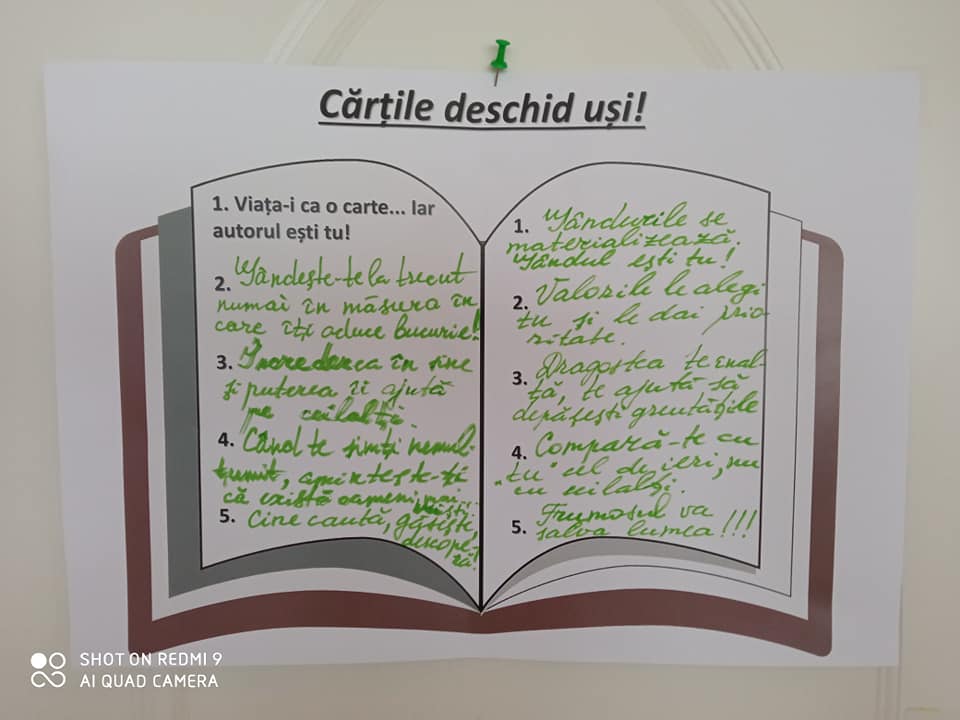 Cărțile deschid uși!
1. Viața-i ca o carte... Iar
autorul ești tu!
2. Gândește-te la trecut
numai în măsura în
care îți aduce bucurie!
3. Încrederea în sine
și puterea îi ajută
pe ceilalți.
4. Când te simți nemul-
țumit, amintește-ți
că există oameni mai
triști...
5. Cine caută, găsește,
descope-
ră!
1. Gândurile se
materializează.
Gândul ești tu!
2. Valorile le alegi
tu și le dai prio-
ritate.
3. Dragostea te înal-
ță, te ajută să
depășești greutățile
4. Compară-te cu
"tu" cel de ieri, nu
cu ceilalți.
5. Frumosul va
salva lumea!!!
SHOT ON REDMI 9
AI QUAD CAMERA